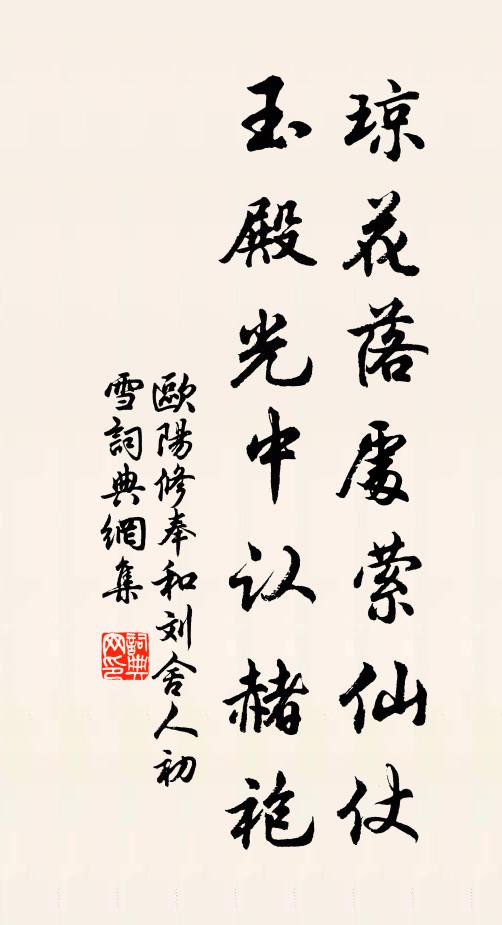 琼花落處萦仙仗
玉殿光中认赭袍
歐陽修奉和刘舍人初
雪詞典網集
詞典网印